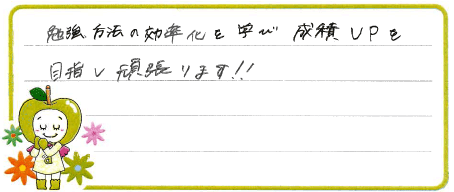 勉強方法の効率化を学び 成績UPを
目指し頑張ります!!